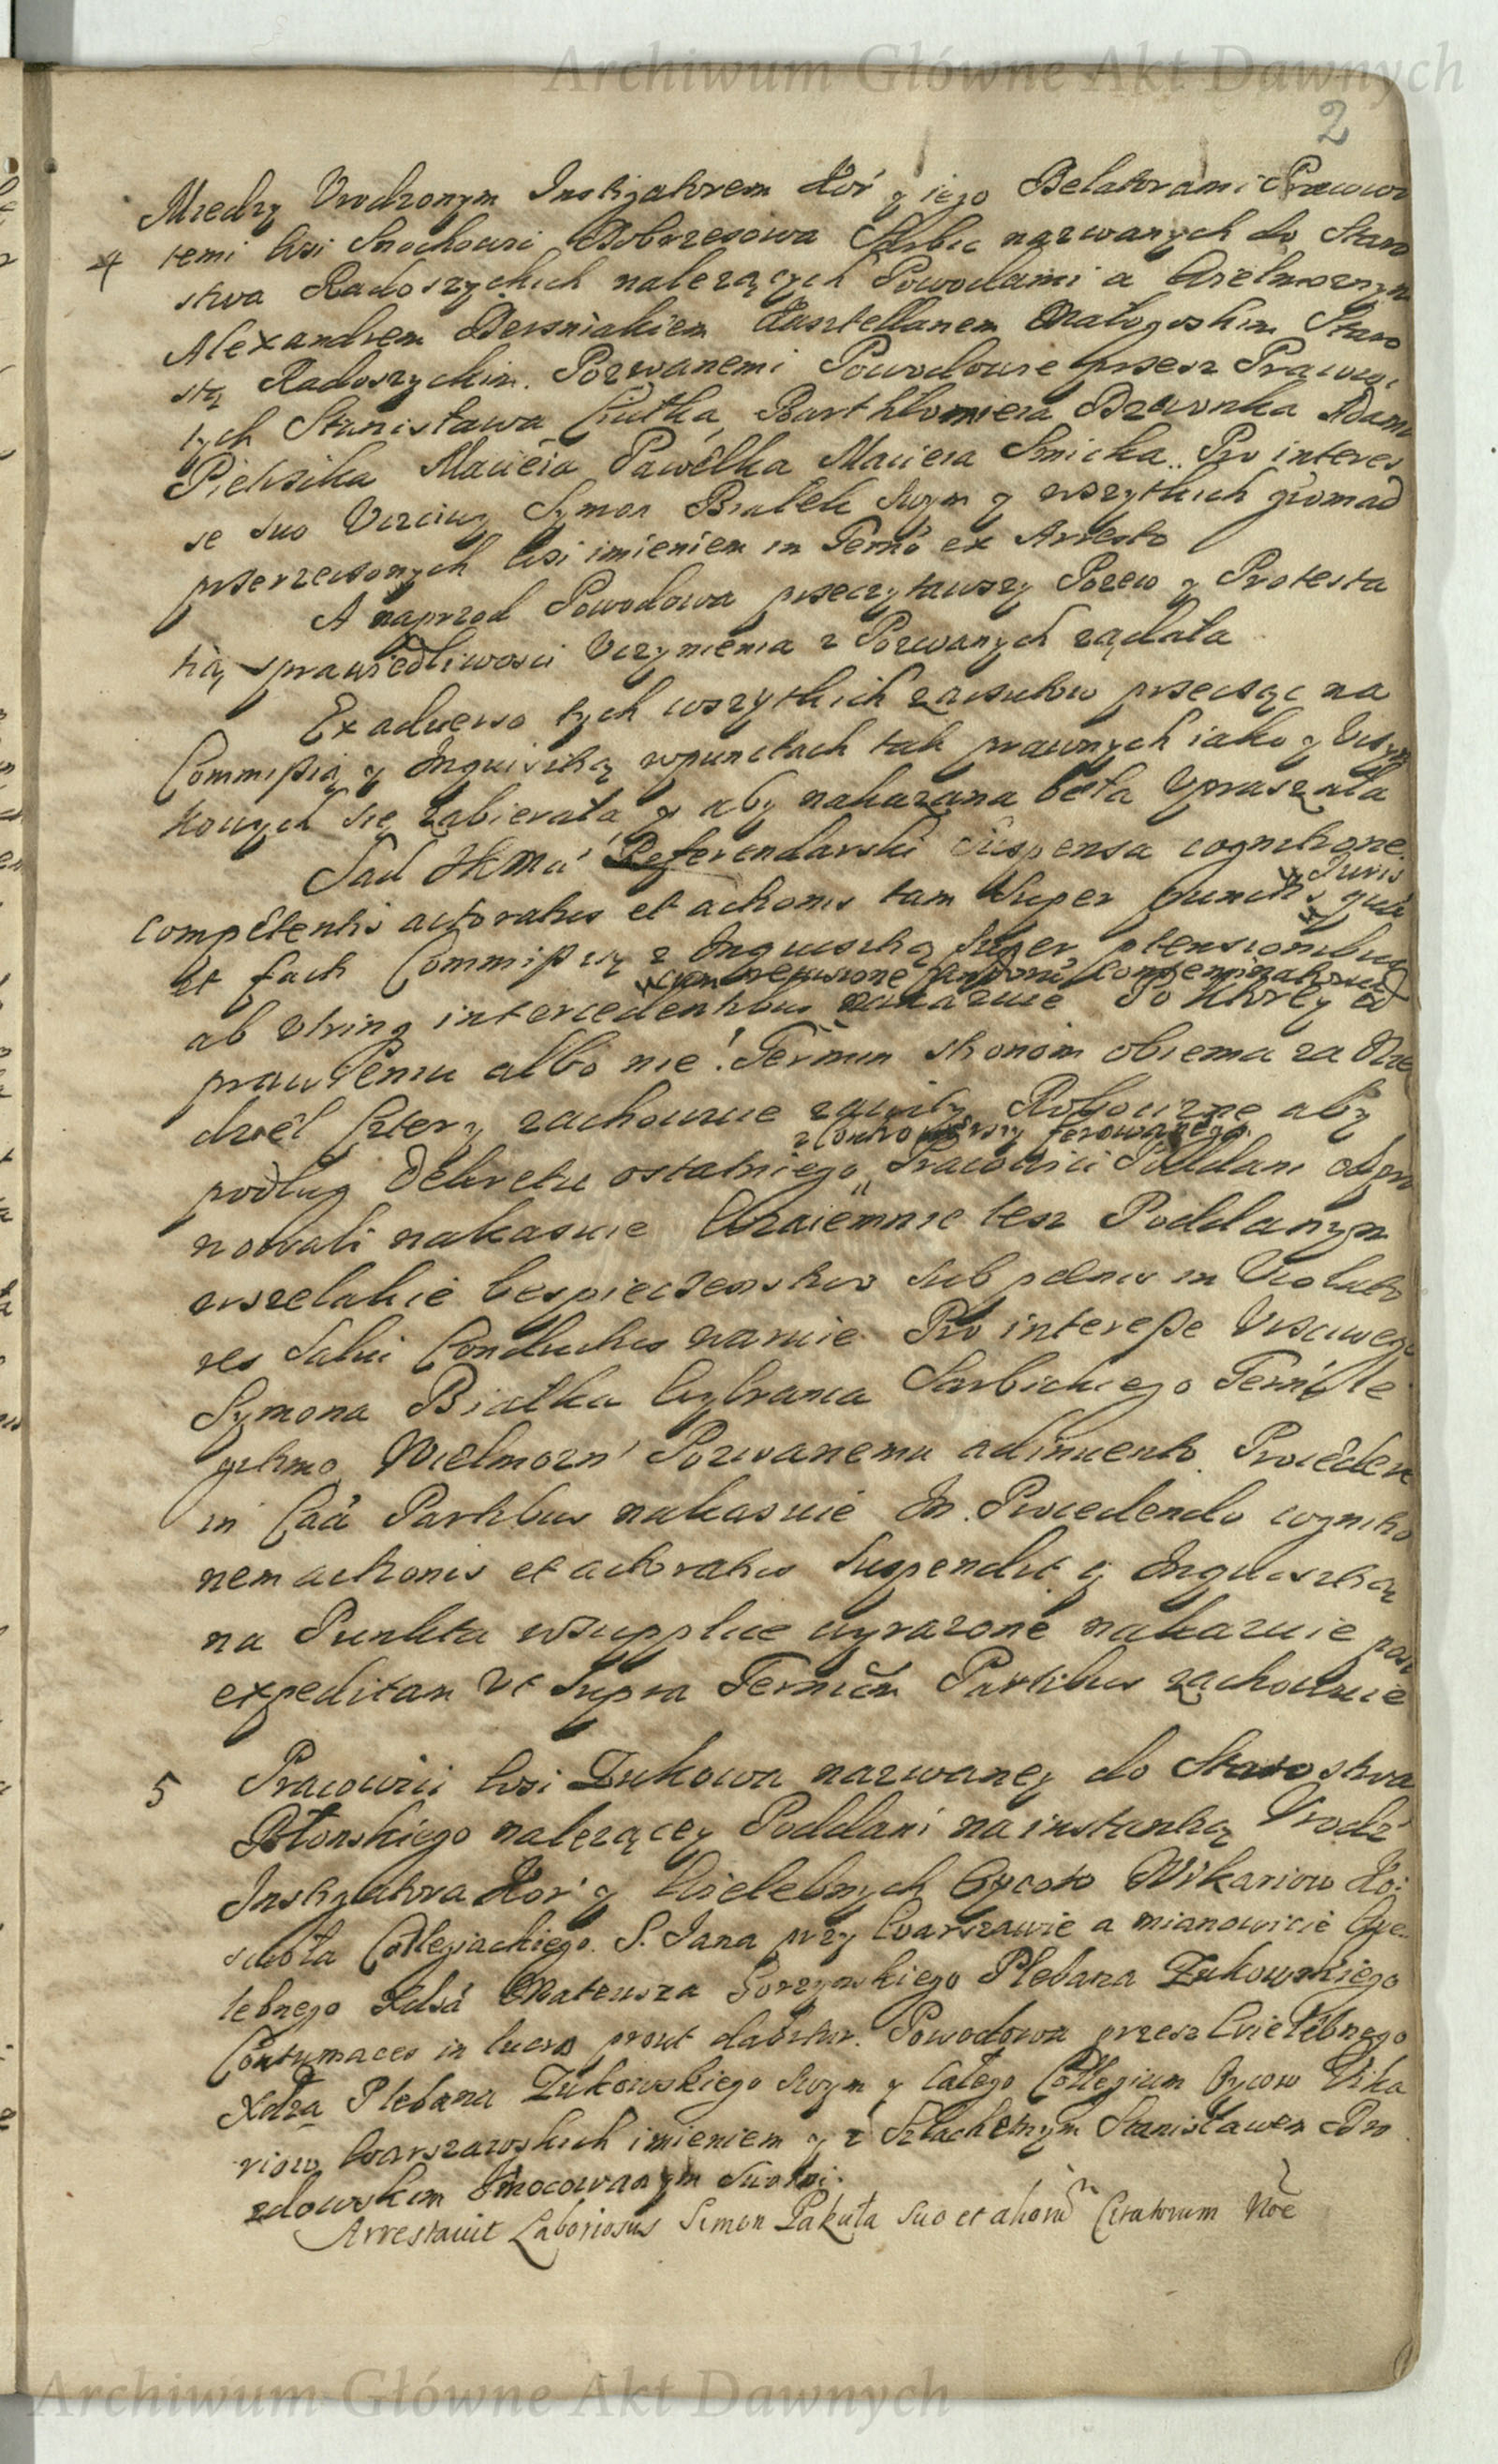 Archiwum Główne Akt Dawnych
2
Miedzy Vrodzonym Instigatorem Kor y iego Delatorami Pracowi
4 temi wsi Snochowic Dobrzesowa Skrbic nazwanych do Staro
stwa Radoszyckich należących Powodami a Wielmoznym
Alexandrem Dersniakiem Kasztellanem Małogoskim Staro
stą Radoszyckim. Pozwanemi Powodowie przesz Pracowi
tych Stanisława Ciutka, Barthłomieia Dzwonka Adama
Pietrzika Macieia Pawełka Macieia Smicka. Pro interes
se suo Vczciwy Symon Białek swym y wszytkich gromad
przerzeczonych wsi imieniem in Termo ex Arresto
A naprzod Powodowa przeczytawszy Pozew y Protesta
tią sprawiedliwosci Vczynienia z Pozwanych ządała
Ex adverso tych wszytkich zarzutow przecząc na
Commissią y Inquisitią wpunctach tak prawnych iako y Vczyn
kowych się zabierała y aby nakazana beła Vpraszała
Sad JKMci Referendarski suspensa cognitione
competentis actoratus et actionis tam super punctis Juris quam
et facti Commissią z Inquisitią super ptensionibus
cum revisione
ab utrinq intercedentibus nakazuie Po ktorey od
prawieniu albo nie! Termin stronom obiema za Nie
dziel sztery zachowuie Robocizne aby
z controwersiy ferowanego
podług Dekretu ostatniego Pracowici Poddani odpra
wowali nakasuie Wzaiemnie tesz Poddanym
wszelakie bespieczenstwo sub poenis in Violato
res Salvi Conductus waruie Pro interesse Vsciwego
Symona Białka Wybranca Skrbickiego
gitimo Wielmozn Pozwanemu adinvento. Procedere
in Caa Partibus nakasuie In Procedendo cognitio
nem actionis et actoratus suspendit y Inquisitią
na Punkta wsupplice wyrazone nakazuie post
expeditam Vt supra Terminum Partibus zachowuie
5 Pracowici wsi Zukowa nazwaney do Starostwa
Błonskiego należącey Poddani na instantią Vrodz
Instigatora Kor y Wielebnych Oycow Wikariow Ko
scioła Collegiackiego S. Jana przy Warszawie a mianowicie Wie
lebnego Xdsa Mateusza Gorzynskiego Plebana Zukowskiego
Contumaces in lucro prout dabitur. Powodowa przesz Wielebnego
Xdza Plebana Zukowskiego swym y całego Collegium Oycow Vika
riow Warszawskich imieniem y z Szlachetnym Stanisławem Bro
zdowskim Vmocowanym swoim.
Arrestavit Laboriosus Simon Pakuła suo et aliorum Citatorum Noe
Archiwum Główne Akt Dawnych